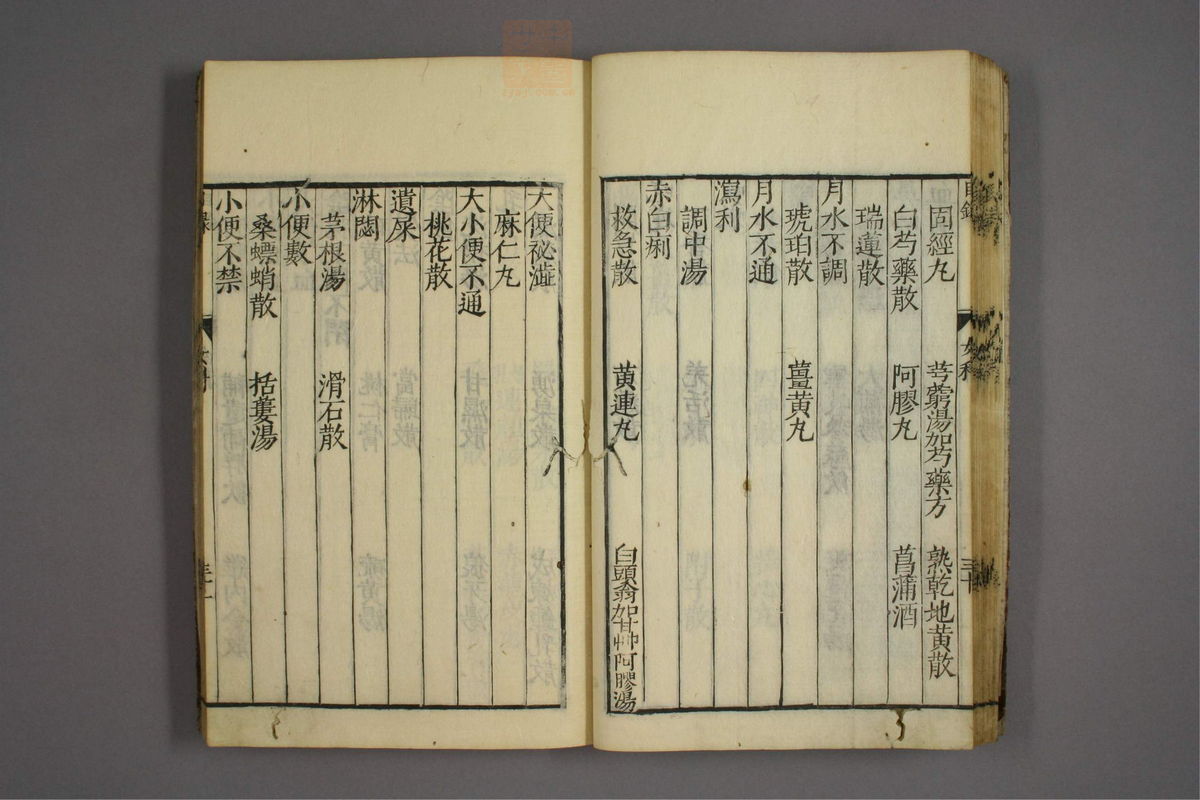 目錄 女科 三十
固經丸 芎藭湯加芍藥方 熟乾地黃散
白芍藥散 阿膠丸 菖蒲酒
瑞蓮散
月水不調
琥珀散 薑黃丸
月水不通
調中湯
瀉利
赤白痢
救急散 黃連丸 白頭翁加甘艸阿膠湯
大便祕澁
麻仁丸
大小便不通
桃花散
遺尿
淋閟
茅根湯 滑石散
小便數
桑螵蛸散 栝蔞湯
小便不禁